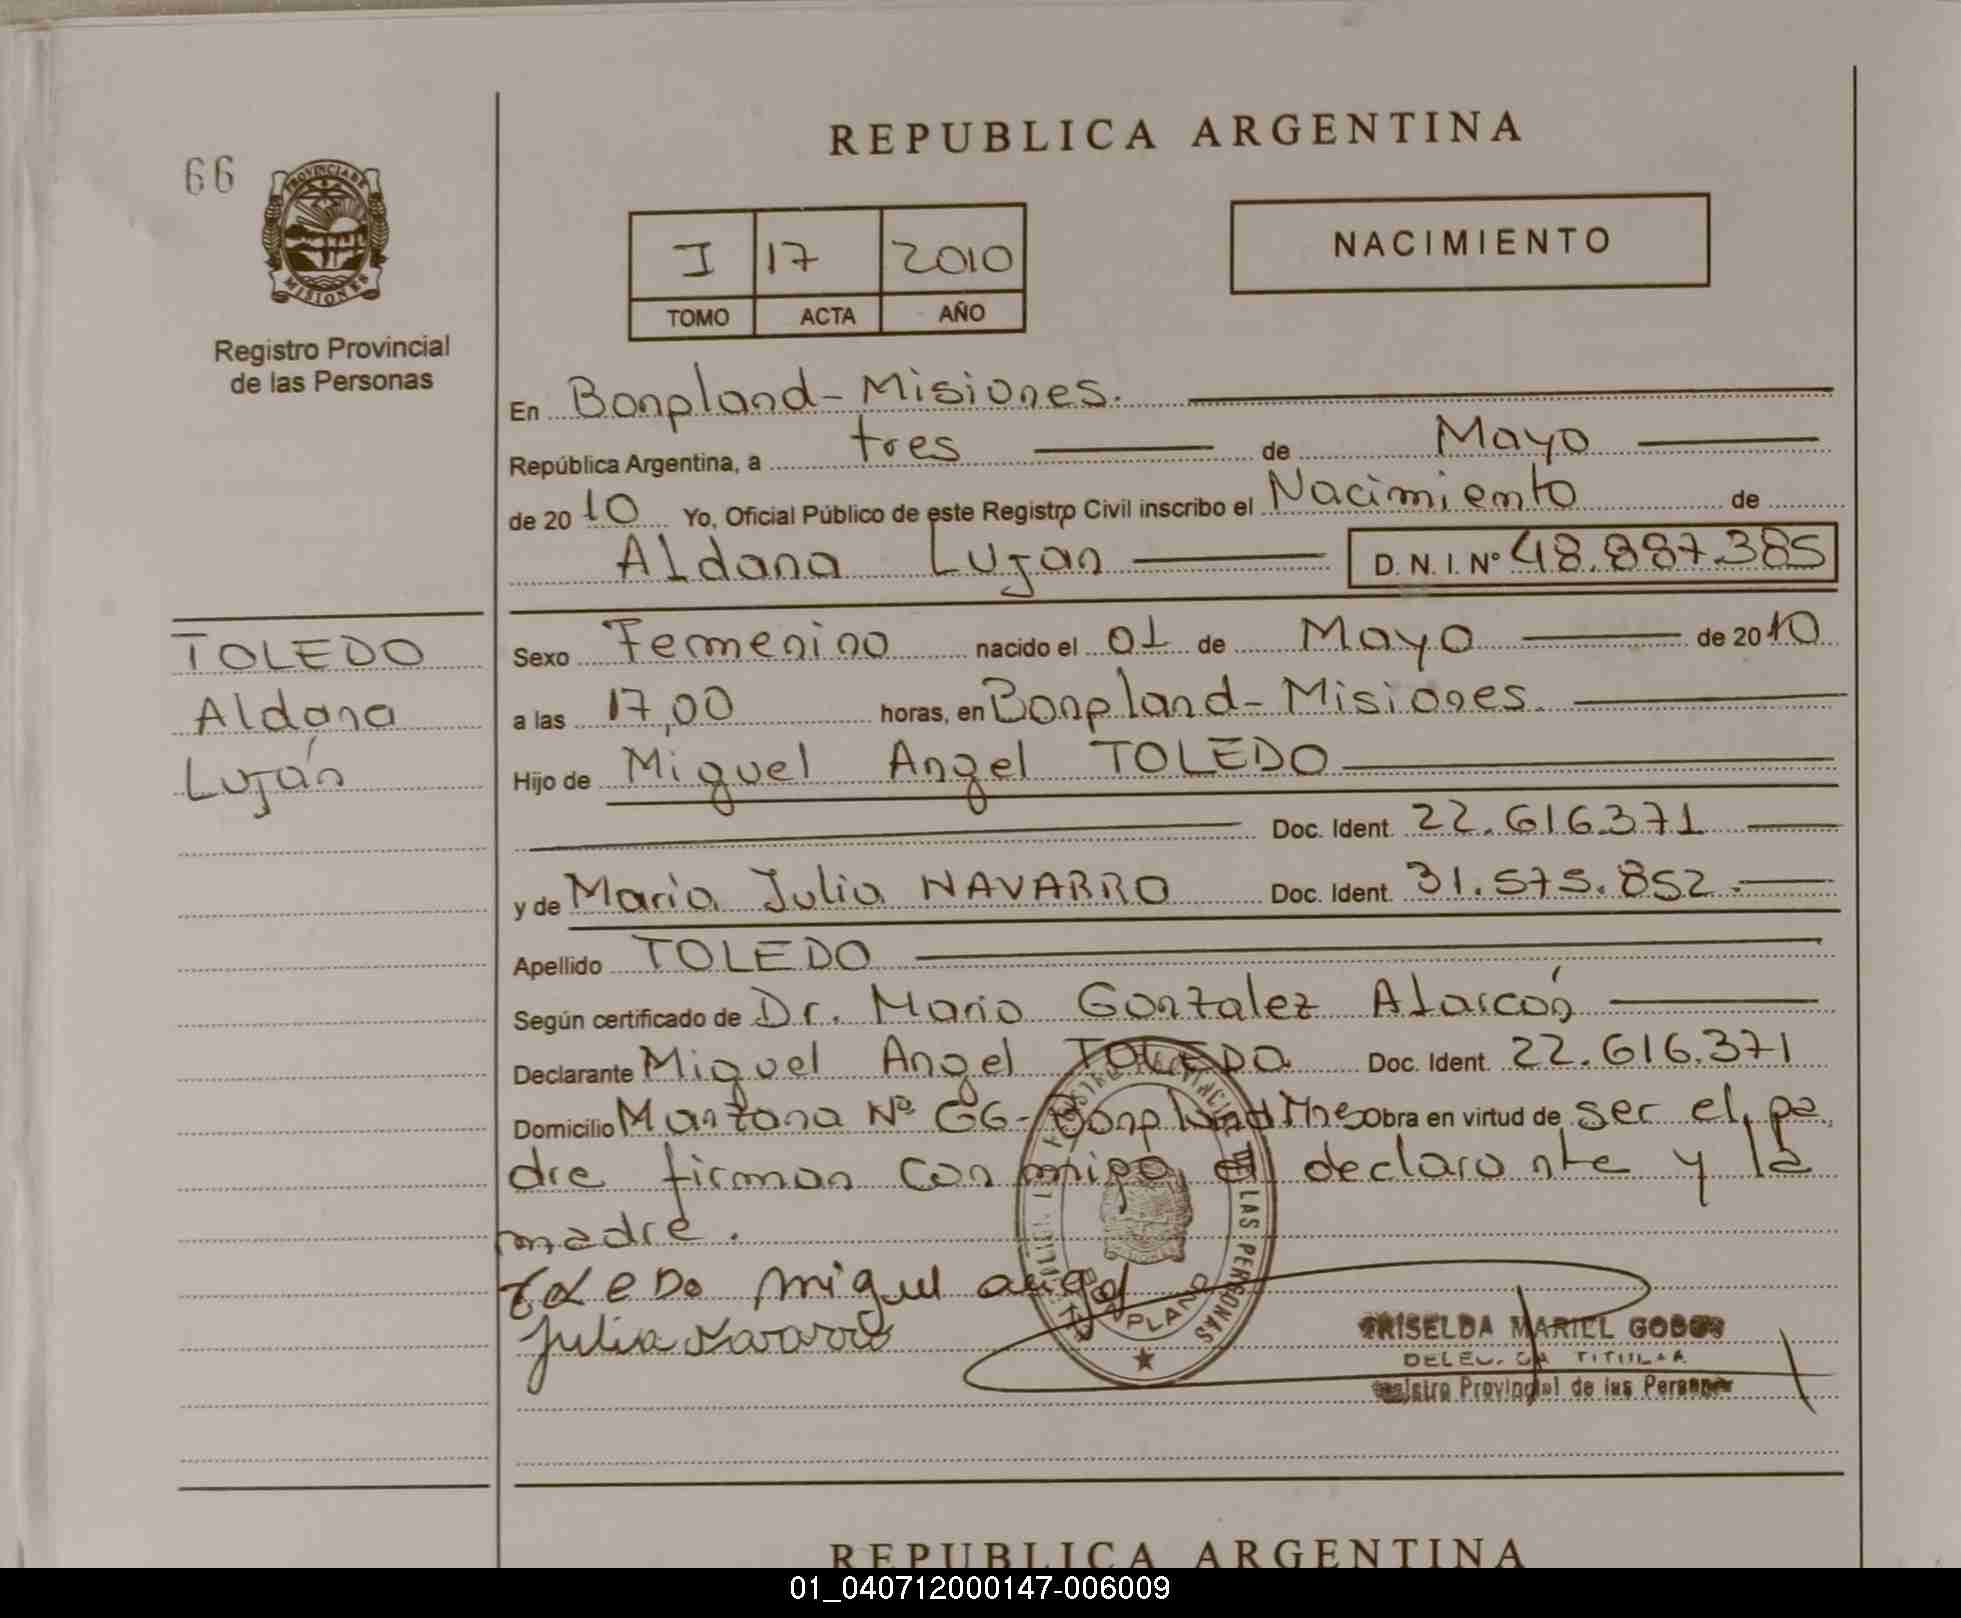 REPUBLICA ARGENTINA
66
PROVINCIA DE
MISIONES
Registro Provincial
de las Personas
I 17 2010
TOMO ACTA AÑO
NACIMIENTO
En Bonpland - Misiones.
República Argentina, a tres de Mayo
de 20 10 Yo, Oficial Público de este Registro Civil inscribo el Nacimiento de
Aldana Lujan D. N. I. Nº 48.887.385
TOLEDO
Aldana
Luján
Sexo Femenino nacido el 01 de Mayo de 20 10
a las 17,00 horas, en Bonpland - Misiones.
Hijo de Miguel Angel TOLEDO
Doc. Ident. 22.616.371
y de Maria Julia NAVARRO Doc. Ident. 31.575.852.
Apellido TOLEDO
Según certificado de Dr. Mario Gonzalez Alarcón
Declarante Miguel Angel TOLEDO Doc. Ident. 22.616.371
Domicilio Manzana Nº 66 - Bonpland Mnes Obra en virtud de ser el pa
dre firman conmigo, el declarante y la
madre.
TOLEDO Miguel angel
Julia Navarro
LAS PERSONAS
BONPLAND
GRISELDA MARIEL
TITULAR
Registro Provincial de las Personas
REPUBLICA ARGENTINA
01_040712000147-006009